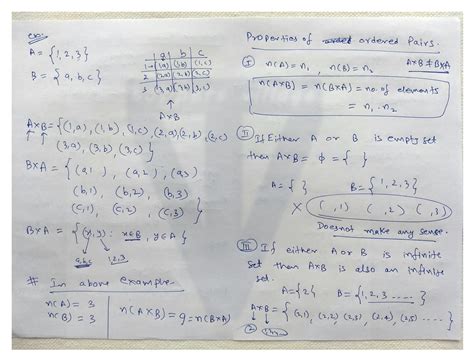 ex:
A = {1,2,3}
B = {a,b,c}
a b c
1 (1,a) (1,b) (1,c)
2 (2,a) (2,b) (2,c)
3 (3,a) (3,b) (3,c)
A×B
A×B = {(1,a), (1,b), (1,c), (2,a), (2,b), (2,c)
(3,a), (3,b), (3,c)}
B×A = {(a,1), (a,2), (a,3)
(b,1), (b,2), (b,3)
(c,1), (c,2), (c,3)}
B×A = {(x,y): x∈B, y∈A}
a,b,c 1,2,3
# In above example-
n(A) = 3
n(B) = 3
n(A×B) = 9 = n(B×A)
Properties of ordered Pairs.
I n(A) = n₁, n(B) = n₂ A×B ≠ B×A
n(A×B) = n(B×A) = no. of elements
= n₁.n₂
II If Either A or B is empty set
then A×B = ϕ = { }
A = { } B = {1,2,3}
× ( ,1) ( ,2) ( ,3)
Doesnot make any sense.
III If either A or B is infinite
set then A×B is also an infinite
set.
A = {2} B = {1,2,3 .....}
A×B = {(2,1), (2,2), (2,3), (2,4), (2,5) .....